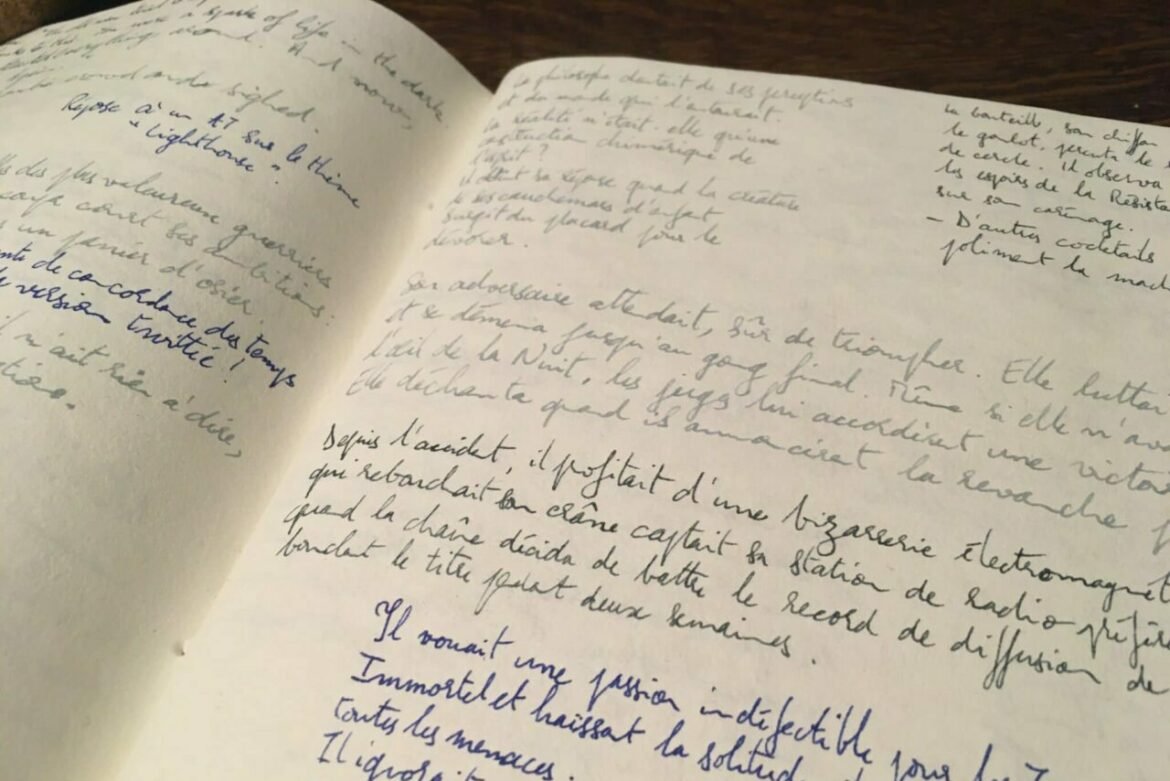 a spark of life in the dark
around. And now,
sighed.
Réponse à un AT sur le thème
"Lighthouse".
des plus valeureux guerriers
court ses ambitions
un panier d'osier
de concordance des temps
version twittée !
n'ait rien à dire,
Le philosophe doutait de ses perceptions
et du monde qui l'entourait.
La réalité n'était-elle qu'une
construction chimérique de
l'esprit ?
Il obtint sa réponse quand la créature
de ses cauchemars d'enfant
surgit du placard pour le
dévorer.
La bouteille, son chiffon
le goulot, percuta le
de cercle. Il observa
les espoirs de la Résista
sur son carénage.
- D'autres cocktails
joliment la mach
Son adversaire attendait, sûr de triompher. Elle lutta
et se démena jusqu'au gong final. Même si elle n'ava
l'œil de la Nuit, les juges lui accordèrent une victoi
Elle déchanta quand ils annoncèrent la revanche
Depuis l'accident, il profitait d'une bizarrerie électromagnét
qui rebouchait son crâne captait sa station de radio préfér
quand la chaîne décida de battre le record de diffusion de
bouclant le titre pendant deux semaines.
Il vouait une passion indéfectible pour les
Immortel et haïssant la solitude
toutes les menaces.
Il ignorait